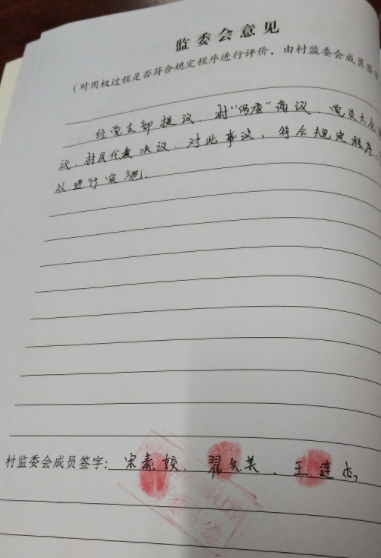 监委会意见
（对用权过程是否符合规定程序进行评价，由村监委会成员签
经党支部提议，村“两委”商议，党员大会
议，村民代表决议，对此事议，符合规定程序，
以进行实施。
村监委会成员签字：宋素姣、翟先美、王莲